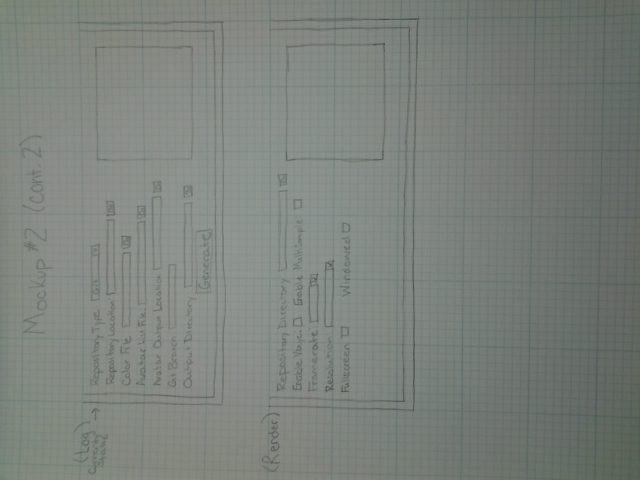 Mockup #2 (cont. 2)
(Log)
Currently
Repository Type: Git
Repository Location
Color File
Avatar List File
Avatar Output Location
Git Branch
Output Directory
Generate
(Render)
Repository Directory
Enable Vsync Enable Multisample
Framerate
Resolution
Fullscreen Windowed